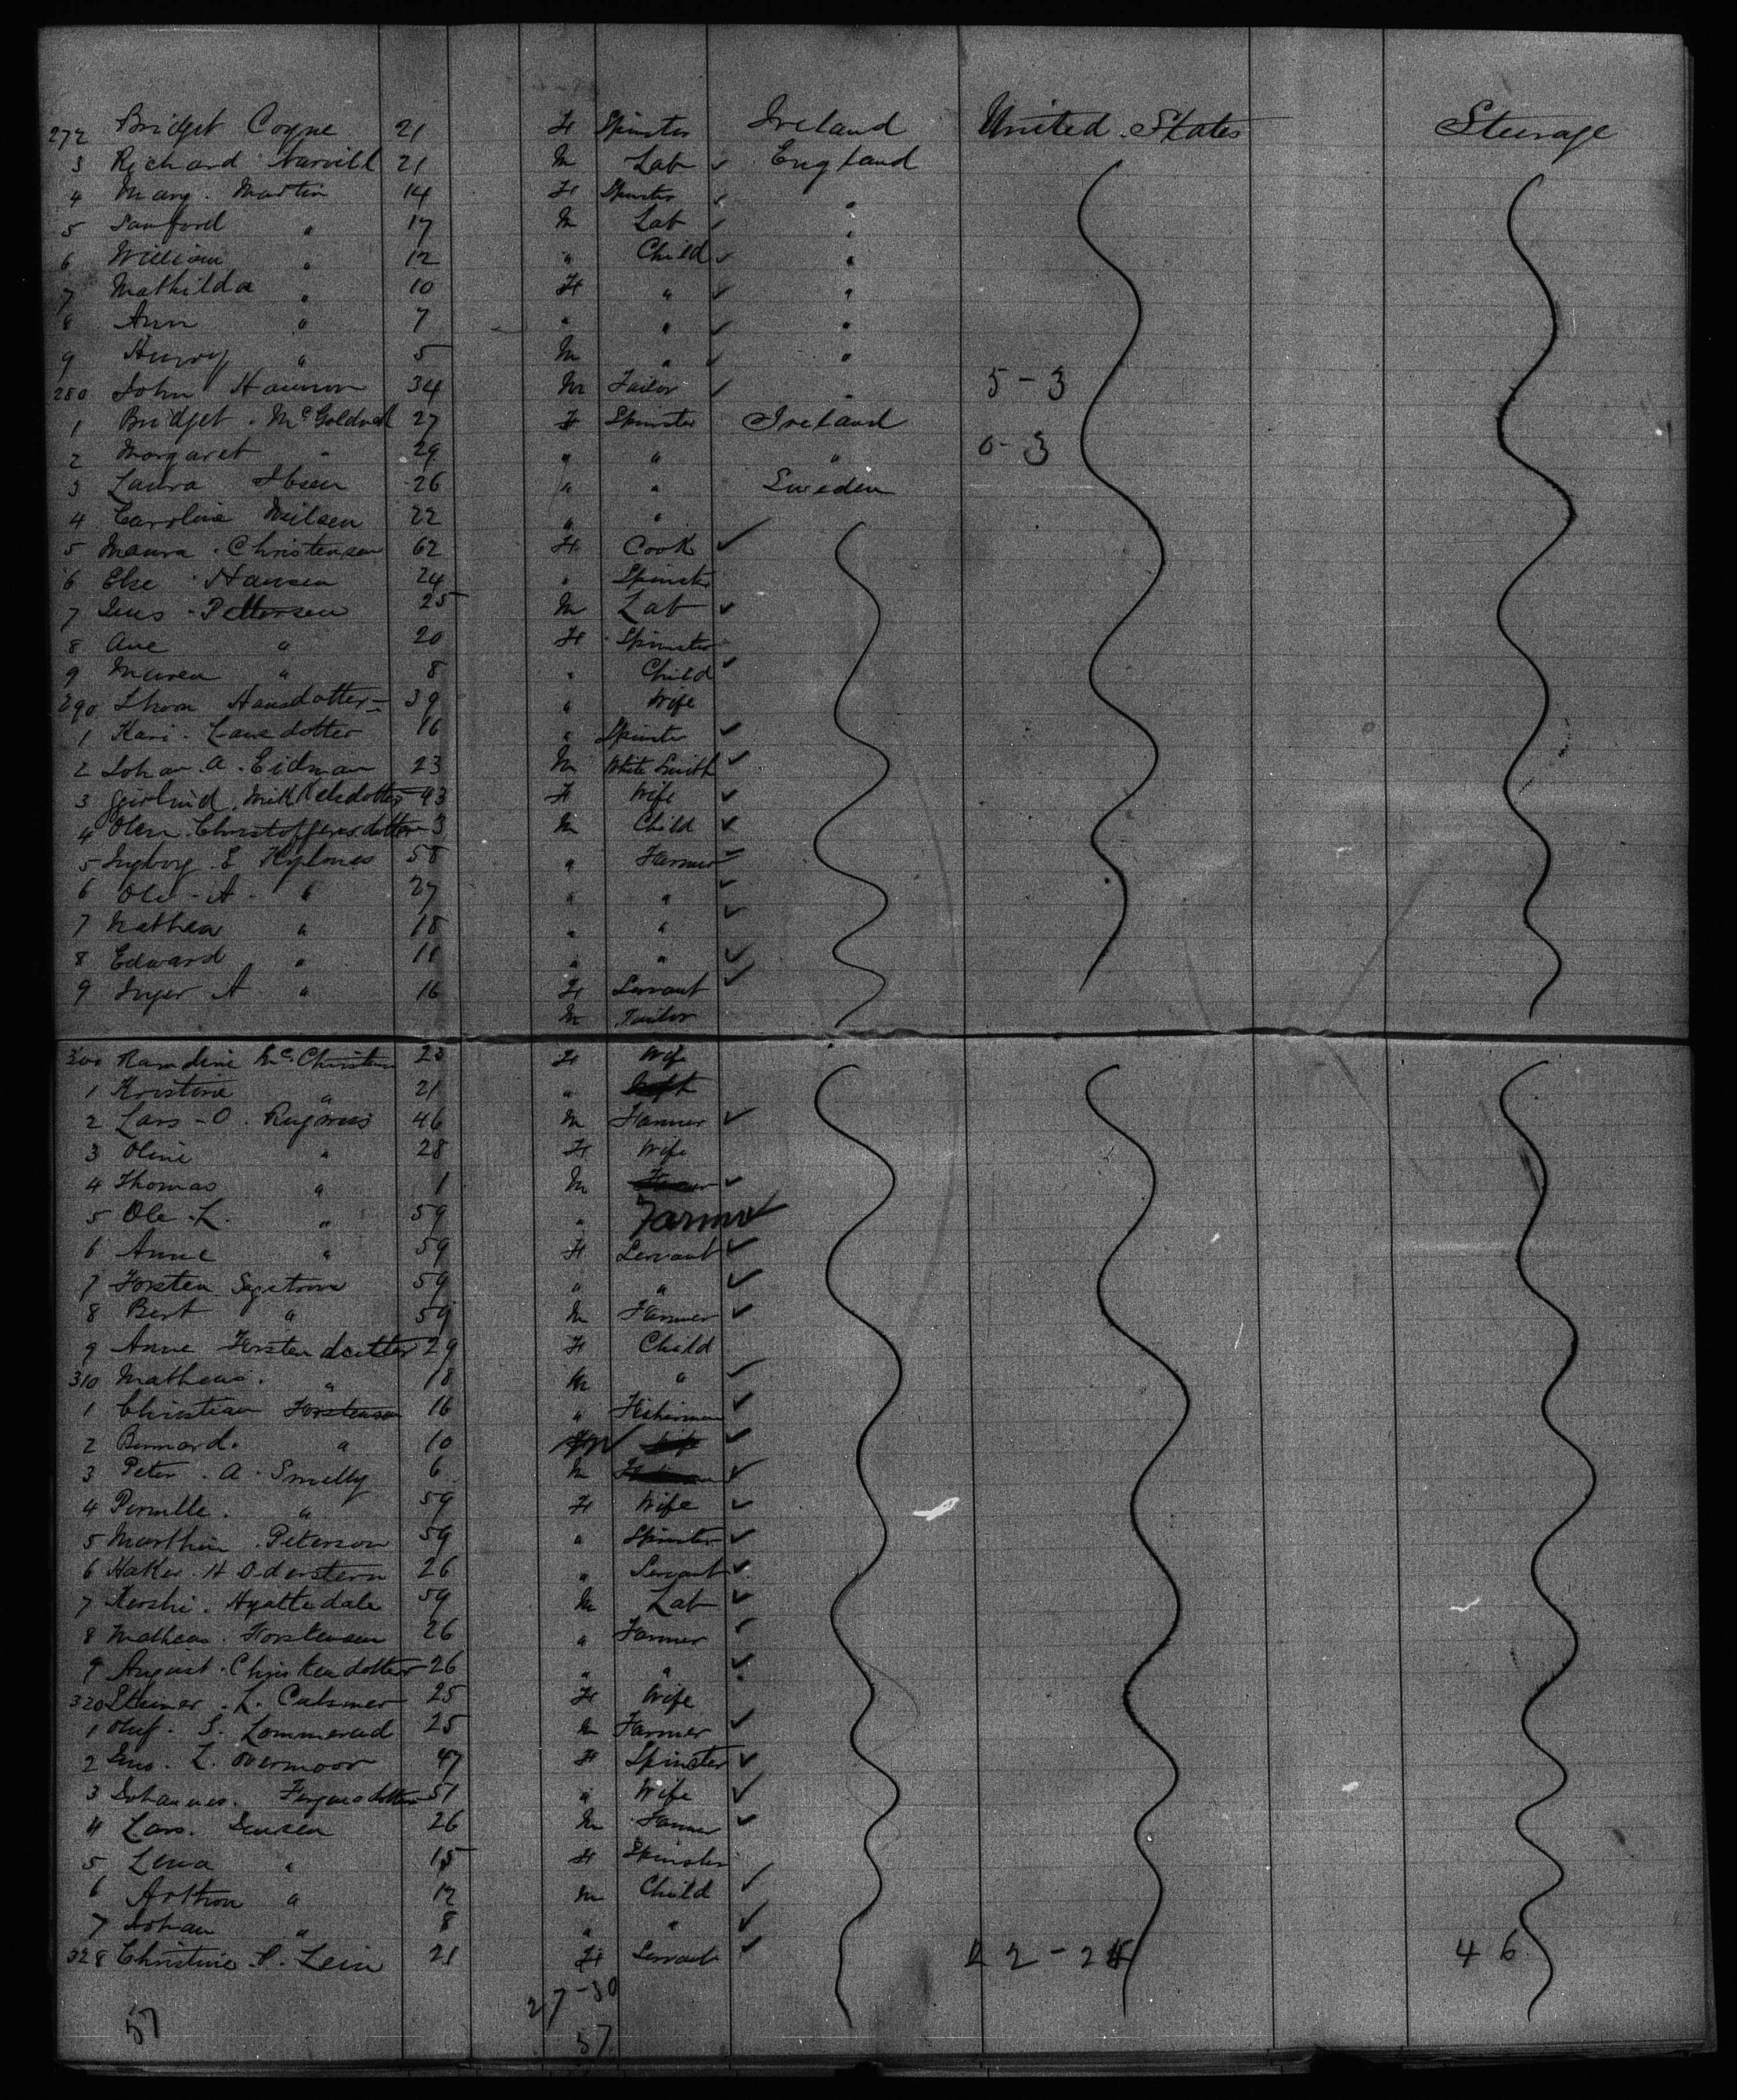 272 Bridget Coyne 21 F Spinster Ireland United States Steerage
3 Richard 21 M Lab England
4 Mary Martin 14 F Spinster "
5 Sanford " 17 M Lab "
6 William " 12 " Child "
7 Mathilda " 10 F " "
8 Ann " 7 " " "
9 " 5 M " "
280 John Hannon 34 M Tailor " 5-3
1 Bridget McGoldrick 27 F Spinster Ireland
2 Margaret " 29 " " " 0-3
3 Laura Ibsen 26 " " Sweden
4 Caroline Neilsen 22 " "
5 Maura Christensen 62 F Cook
6 Else Hansen 24 " Spinster
7 Jens Pettersen 25 M Lab
8 Ane " 20 F Spinster
9 Maren " 8 " Child
290 Hansdotter 39 " Wife
1 Kari Larsdotter 16 " Spinster
2 Johan A. Eidman 23 M White Smith
3 Mikkelsdotter 43 F Wife
4 Olen Christoffersdotter 3 M Child
5 Ingborg E 58 " Farmer
6 Ole A " 27 " "
7 Mathea " 18 " "
8 Edward " 11 " "
9 Inger A " 16 F Servant
M Tailor
300 Ramdine Mc Christen 23 F Wife
1 Kristine " 21 "
2 Lars O. 46 M Farmer
3 Oline " 28 F Wife
4 Thomas " 1 M
5 Ole L. " 59 " Farmer
6 Anne " 59 F Servant
7 Torsten 59 " "
8 Bert " 59 M Farmer
9 Anne Torstendotter 29 F Child
310 Matheas " 18 M "
1 Christian Torstenson 16 " Fisherman
2 Bernard " 10 M
3 Peter A. Smelly 6 M
4 Pernille " 59 F Wife
5 Marthin Peterson 59 " Spinster
6 H Oderstern 26 " Servant
7 Hyattedale 59 M Lab
8 Matheas Torstensen 26 " Farmer
9 August Christendotter 26 " "
320 L. 25 F Wife
1 Oluf S. Lommerud 25 M Farmer
2 Jens L. Overmoor 47 F Spinster
3 Johannes 51 " Wife
4 Lars Jensen 26 M Farmer
5 Lena " 15 F Spinster
6 " 12 M Child
7 Johan " 8 " "
328 Christine P. Lein 21 F Servant 22-24 46
27-30
57 57